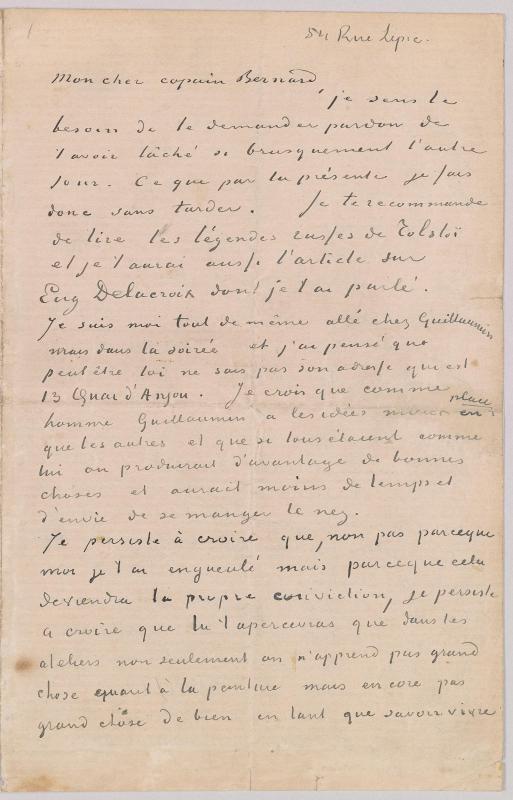 54 Rue Lepic.
Mon cher copain Bernard,
je sens le
besoin de te demander pardon de
t'avoir lâché si brusquement l'autre
jour. Ce que par la présente je fais
donc sans tarder. Je te recommande
de lire les légendes russes de Tolstoï
et je t'aurai aussi l'article sur
Eug Delacroix dont je t'ai parlé.
Je suis moi tout de même allé chez Guillaumin
mais dans la soirée et j'ai pensé que
peut être toi ne sais pas son adresse qui est
13 Quai d'Anjou. Je crois que comme
homme Guillaumin a les idées mieux en place
que les autres et que si tous étaient comme
lui on produirait d'avantage de bonnes
choses et aurait moins de temps et
d'envie de se manger le nez.
Je persiste à croire que, non pas parceque
moi je t'ai engueulé mais parceque cela
deviendra ta propre conviction, je persiste
a croire que tu t'apercevras que dans les
ateliers non seulement on n'apprend pas grand
chose quant à la peinture mais encore pas
grand chose de bien en tant que savoir vivre